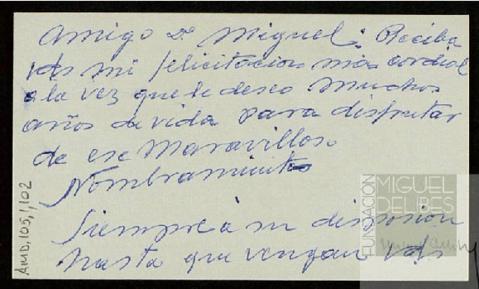 Amigo Dn Miguel: Reciba
Vds mi felicitacion mas cordial
a la vez que le deseo muchos
años de vida para disfrutar
de ese Maravilloso
Nombramiento
Siempre a su disposion
hasta que vengan Vds
AMD,105,1,102
FUNDACIÓN
MIGUEL
DELIBES